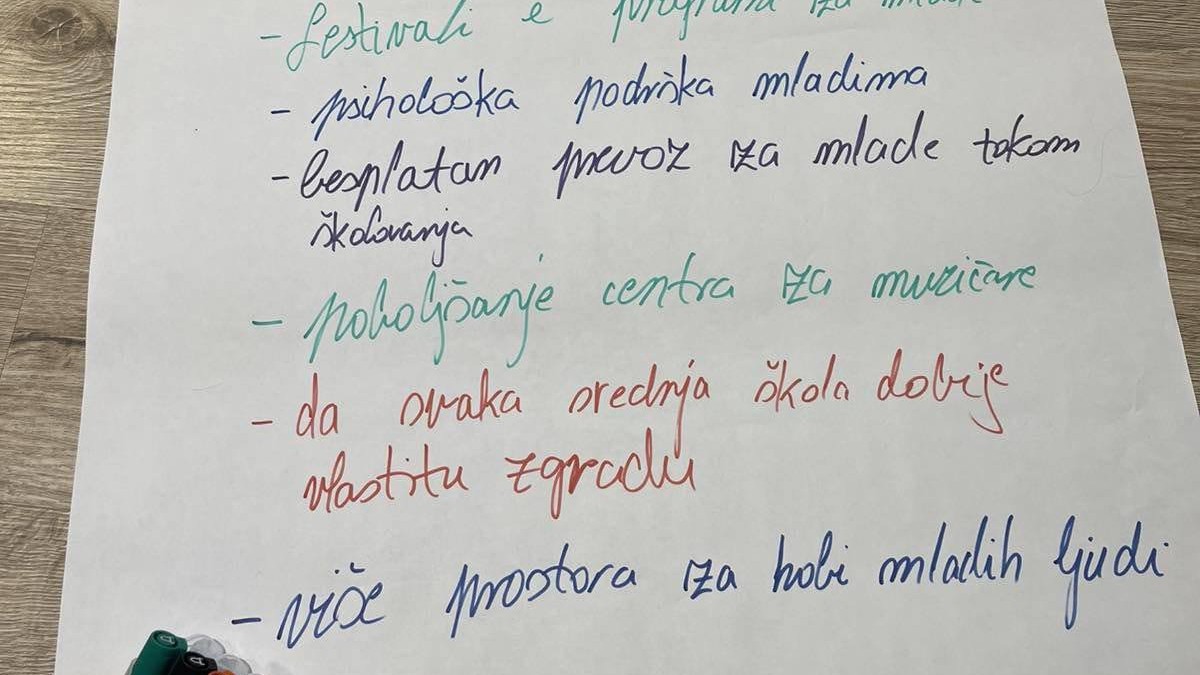 - festivali i programi za mlade
- psihološka podrška mladima
- besplatan prevoz za mlade tokom
školovanja
- poboljšanje centra za muzičare
- da svaka srednja škola dobije
vlastitu zgradu
- više prostora za hobi mladih ljudi